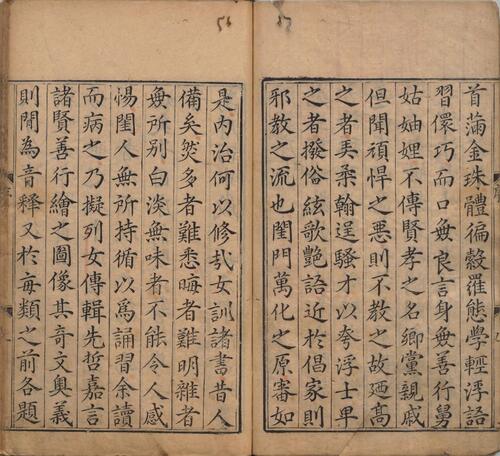 57
首滿金珠體徧縠羅態學輕浮語
習儇巧而口無良言身無善行舅
姑妯娌不傳賢孝之名鄉黨親戚
但聞頑悍之惡則不教之故廼高
之者弄柔翰逞騷才以夸浮士卑
之者撥俗絃歌艷語近於倡家則
邪教之流也閨門萬化之原審如
56
是內治何以修哉女訓諸書昔人
備矣然多者難悉晦者難明雜者
無所別白淡無味者不能令人感
惕閨人無所持循以爲誦習余讀
而病之乃擬列女傳輯先哲嘉言
諸賢善行繪之圖像其奇文奧義
則閒為音釋又於每類之前各題